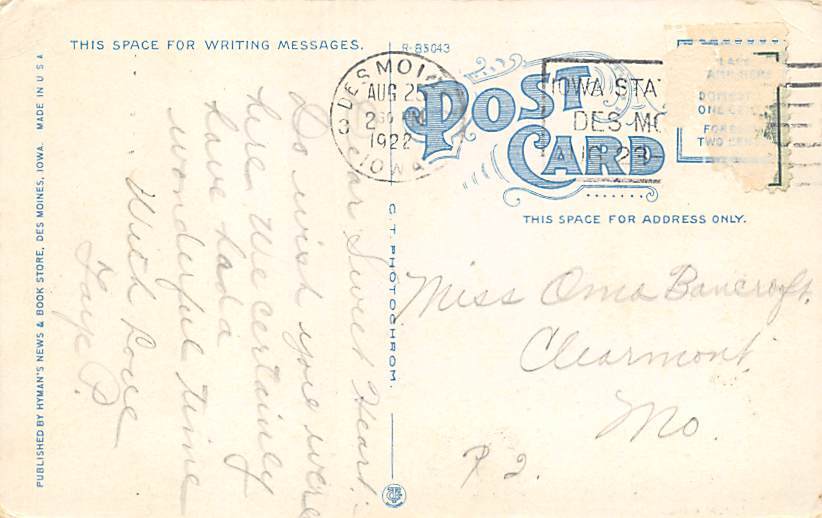 THIS SPACE FOR WRITING MESSAGES.
R-85043
DES MOI
AUG 25
230 PM
1922
IOWA
3
IOWA STA
DES-MO
POST
CARD
ONE CEN
TWO CEN
THIS SPACE FOR ADDRESS ONLY.
Dear Sweet Heart:
Do wish you were
here. We certainly
have had a
wonderful time
With Love
Faye B.
Miss Oma Bancroft,
Clearmont
Mo.
C. T. PHOTOCHROM.
PUBLISHED BY HYMAN'S NEWS & BOOK STORE, DES MOINES, IOWA. MADE IN U S A